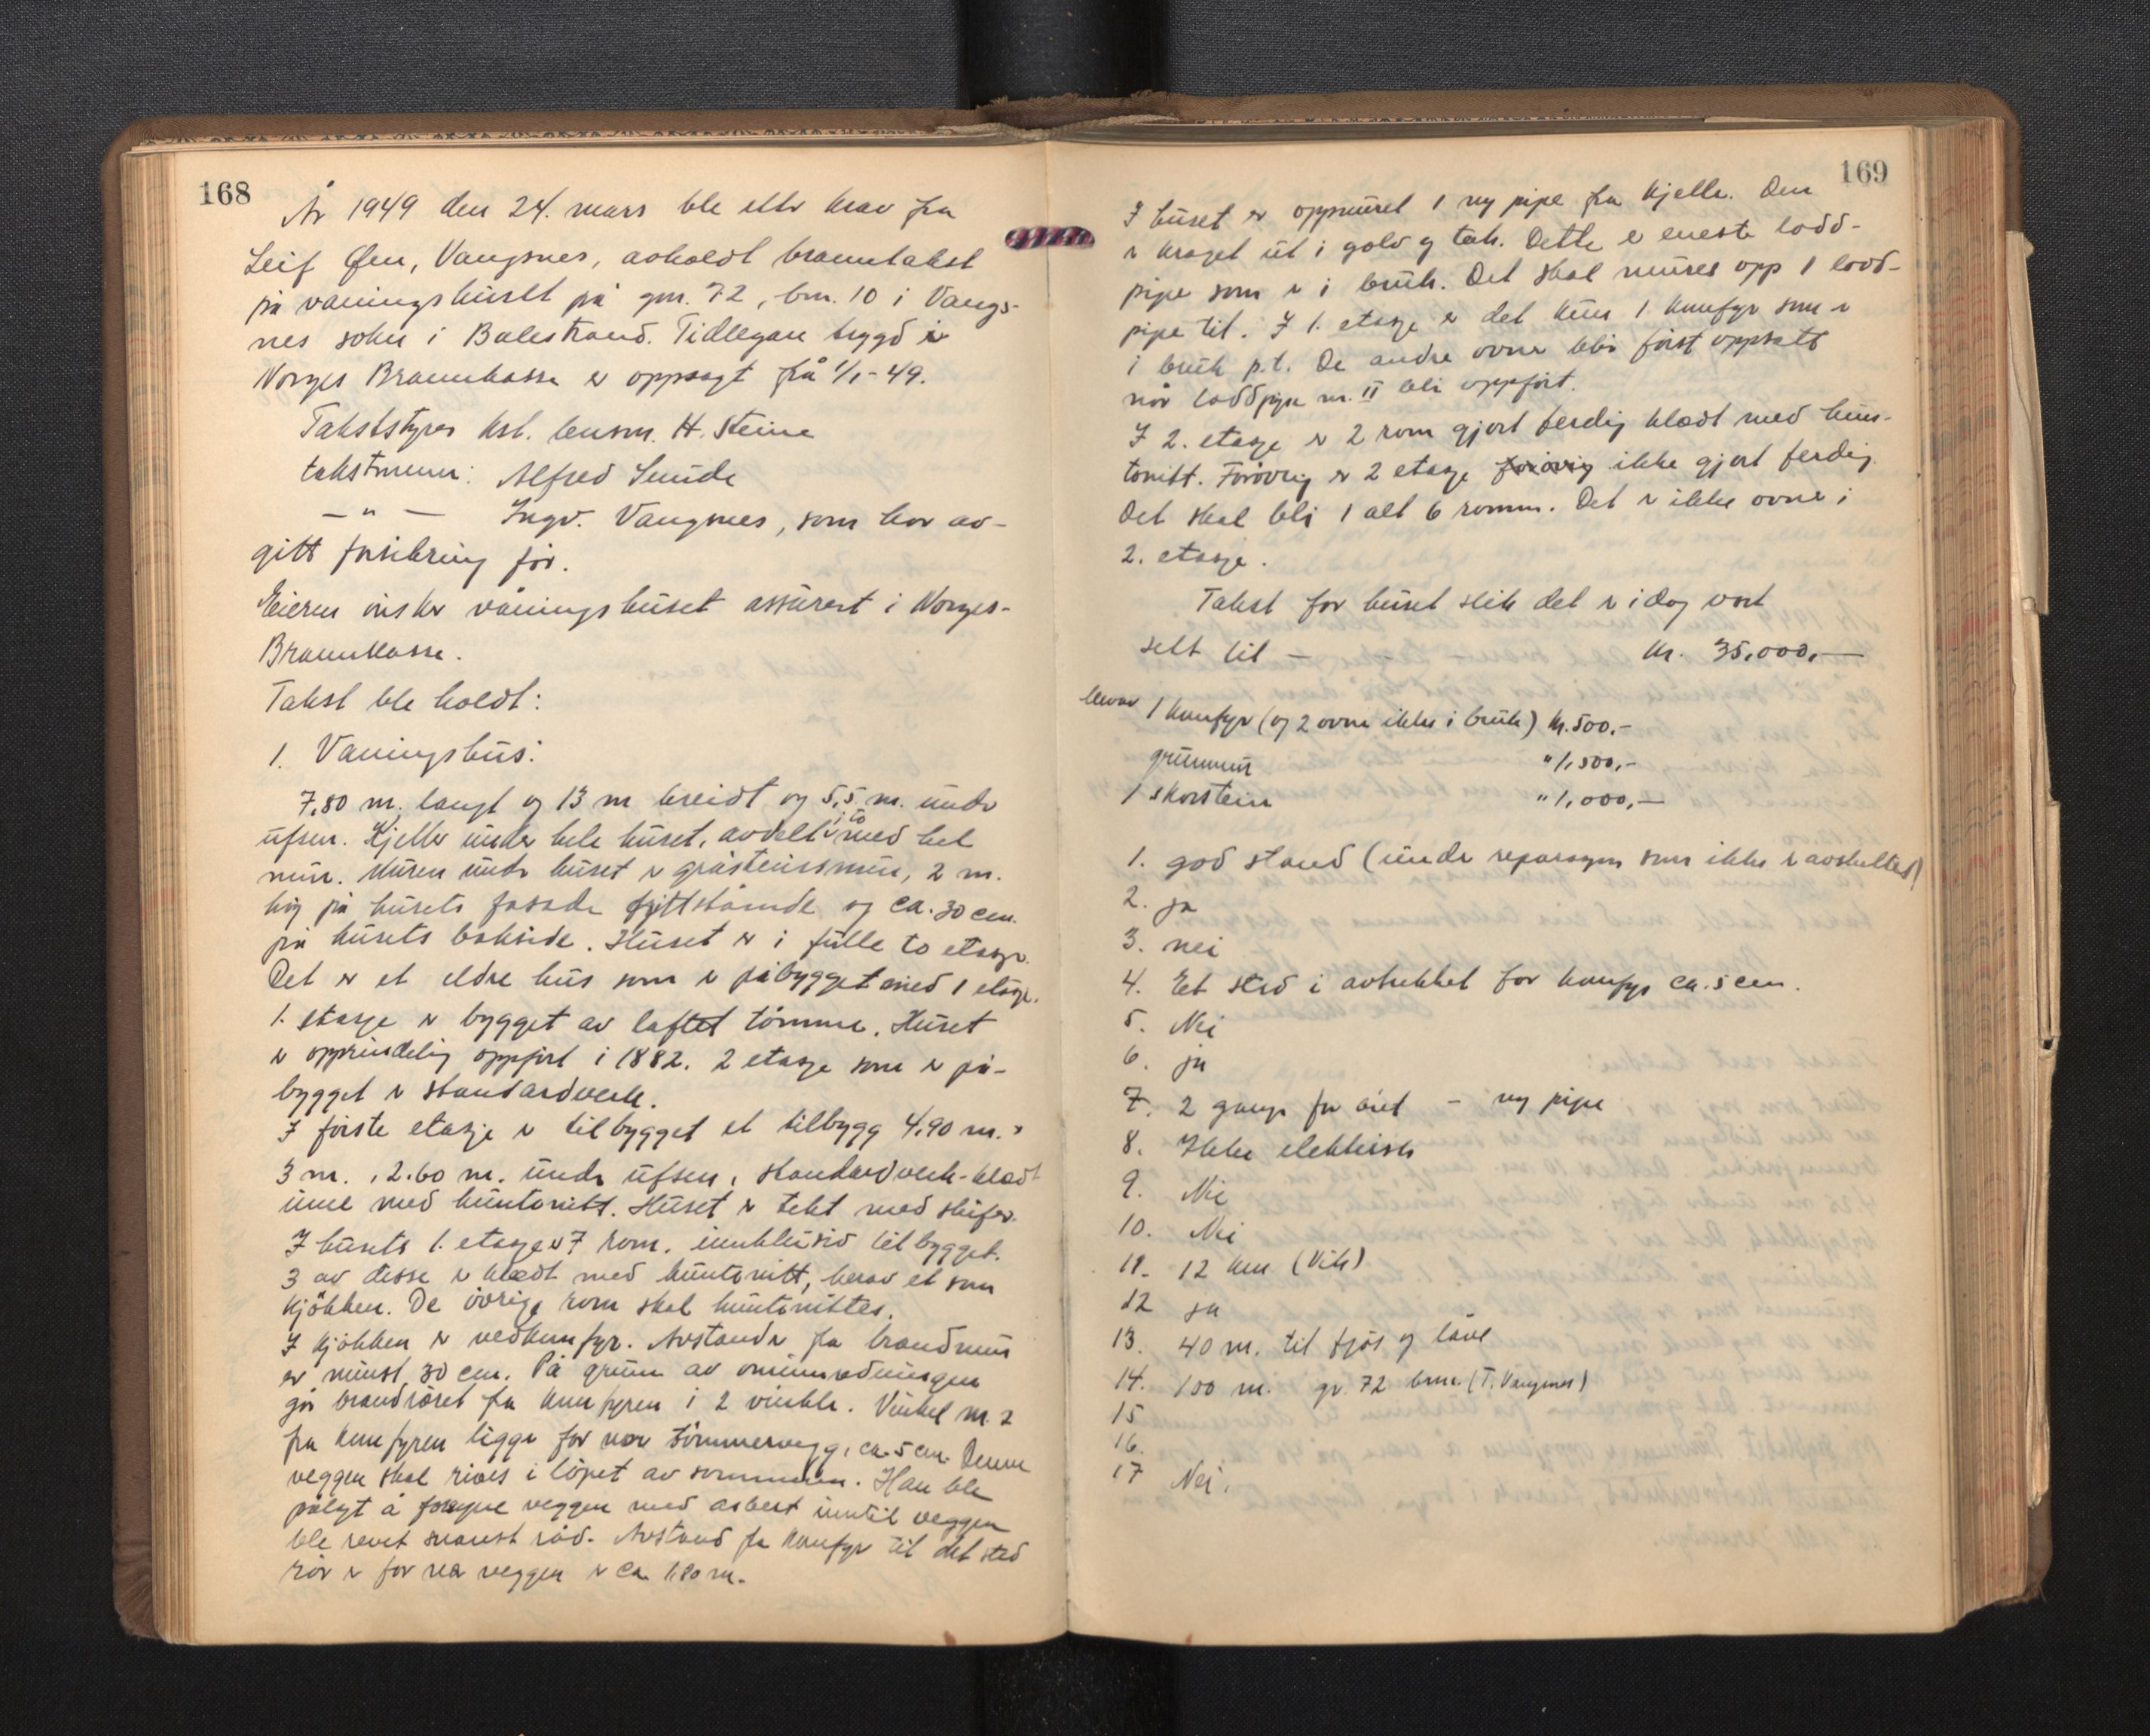 168
År 1949 den 24. mars ble etter krav fra
Leif Øen, Vangsnes, avholdt branntakst
på våningshuset på gnr. 72, bnr. 10 i Vangs-
nes sokn i Balestrand. Tidlegare trygd i
Norges Brannkasse er oppsagt frå 1/1-49.
Takststyrar kst. lensm. H. Steine
takstmenn: Alfred Sunde
— " — Ingv. Vangsnes, som har av-
gitt forsikring før.
Eieren ønsker våningshuset assurert i Norges-
Brannkasse.
Takst ble holdt:
1. Våningshus:
7,80 m. langt og 13 m breidt og 5,5 m. under
ufsen. Kjeller under hele huset, avdelt i to med hel
mur. Muren under huset er gråsteinsmur, 2 m.
høg på husets fasade frittstående og ca. 30 cm.
på husets bakside. Huset er i fulle to etasjer.
Det er et eldre hus som er påbygget med 1 etasje.
1. etasje er bygget av laftet tømmer. Huset
er opprindelig oppført i 1882. 2 etasje som er på-
bygget er standardverk.
I første etasje er tilbygget et tilbygg 4,90 m. x
3 m., 2.60 m. under ufsen, standardverk-klædt
inne med huntonitt. Huset er tekt med skifer.
I husets 1. etasje er 7 rom. inklusiv tilbygget.
3 av disse er klædt med huntonitt, herav et som
kjøkken. De øvrige rom skal huntonittes.
I kjøkken er vedkomfyr. Avstander fra brandmur
er minst 30 cm. På grunn av ominnredningen
går brandrøret fra komfyren i 2 vinkler. Vinkel nr. 2
fra komfyren ligger for nær tømmervegg, ca. 5 cm. Denne
veggen skal rives i løpet av sommeren. Han ble
pålagt å forsyne veggen med asbest inntil veggen
ble revet snarest råd. Avstand fra komfyr til det sted
rør er for nær veggen er ca 1,80 m.
169
I huset er oppmuret 1 ny pipe fra kjeller. Den
er kraget ut i golv og tak. Dette er eneste lodd-
pipe som er i bruk. Det skal mures opp 1 lodd-
pipe til. I 1. etasje er det kun 1 komfyr som er
i bruk p.t. De andre ovner blir først oppsatt
når loddpipe nr. II blir oppført.
I 2. etasje er 2 rom gjort ferdig klædt med hun-
tonitt. Forøvrig er 2 etasje forøvrig ikke gjort ferdig.
Det skal bli i alt 6 romm. Det er ikke ovner i
2. etasje.
Takst for huset slik det er i dag vart
sett til — - kr. 35,000,—
herav 1 komfyr (og 2 ovner ikke i bruk) kr. 500.-
grunnmur " 1,500,-
1 skorstein " 1,000,—
1. god stand (under reparasjon som ikke er avsluttet)
2. ja
3. nei
4. Et sted i avtrekket for komfyr ca. 5 cm.
5. Nei
6. ja
7. 2 ganger for året - ny pipe
8. Ikke elektrisk
9. Nei
10. Nei
11. 12 km (Vik)
12 ja
13. 40 m. til fjøs og låve
14. 100 m. gr. 72 bnr. (T. Vangsnes)
15
16.
17 Nei.